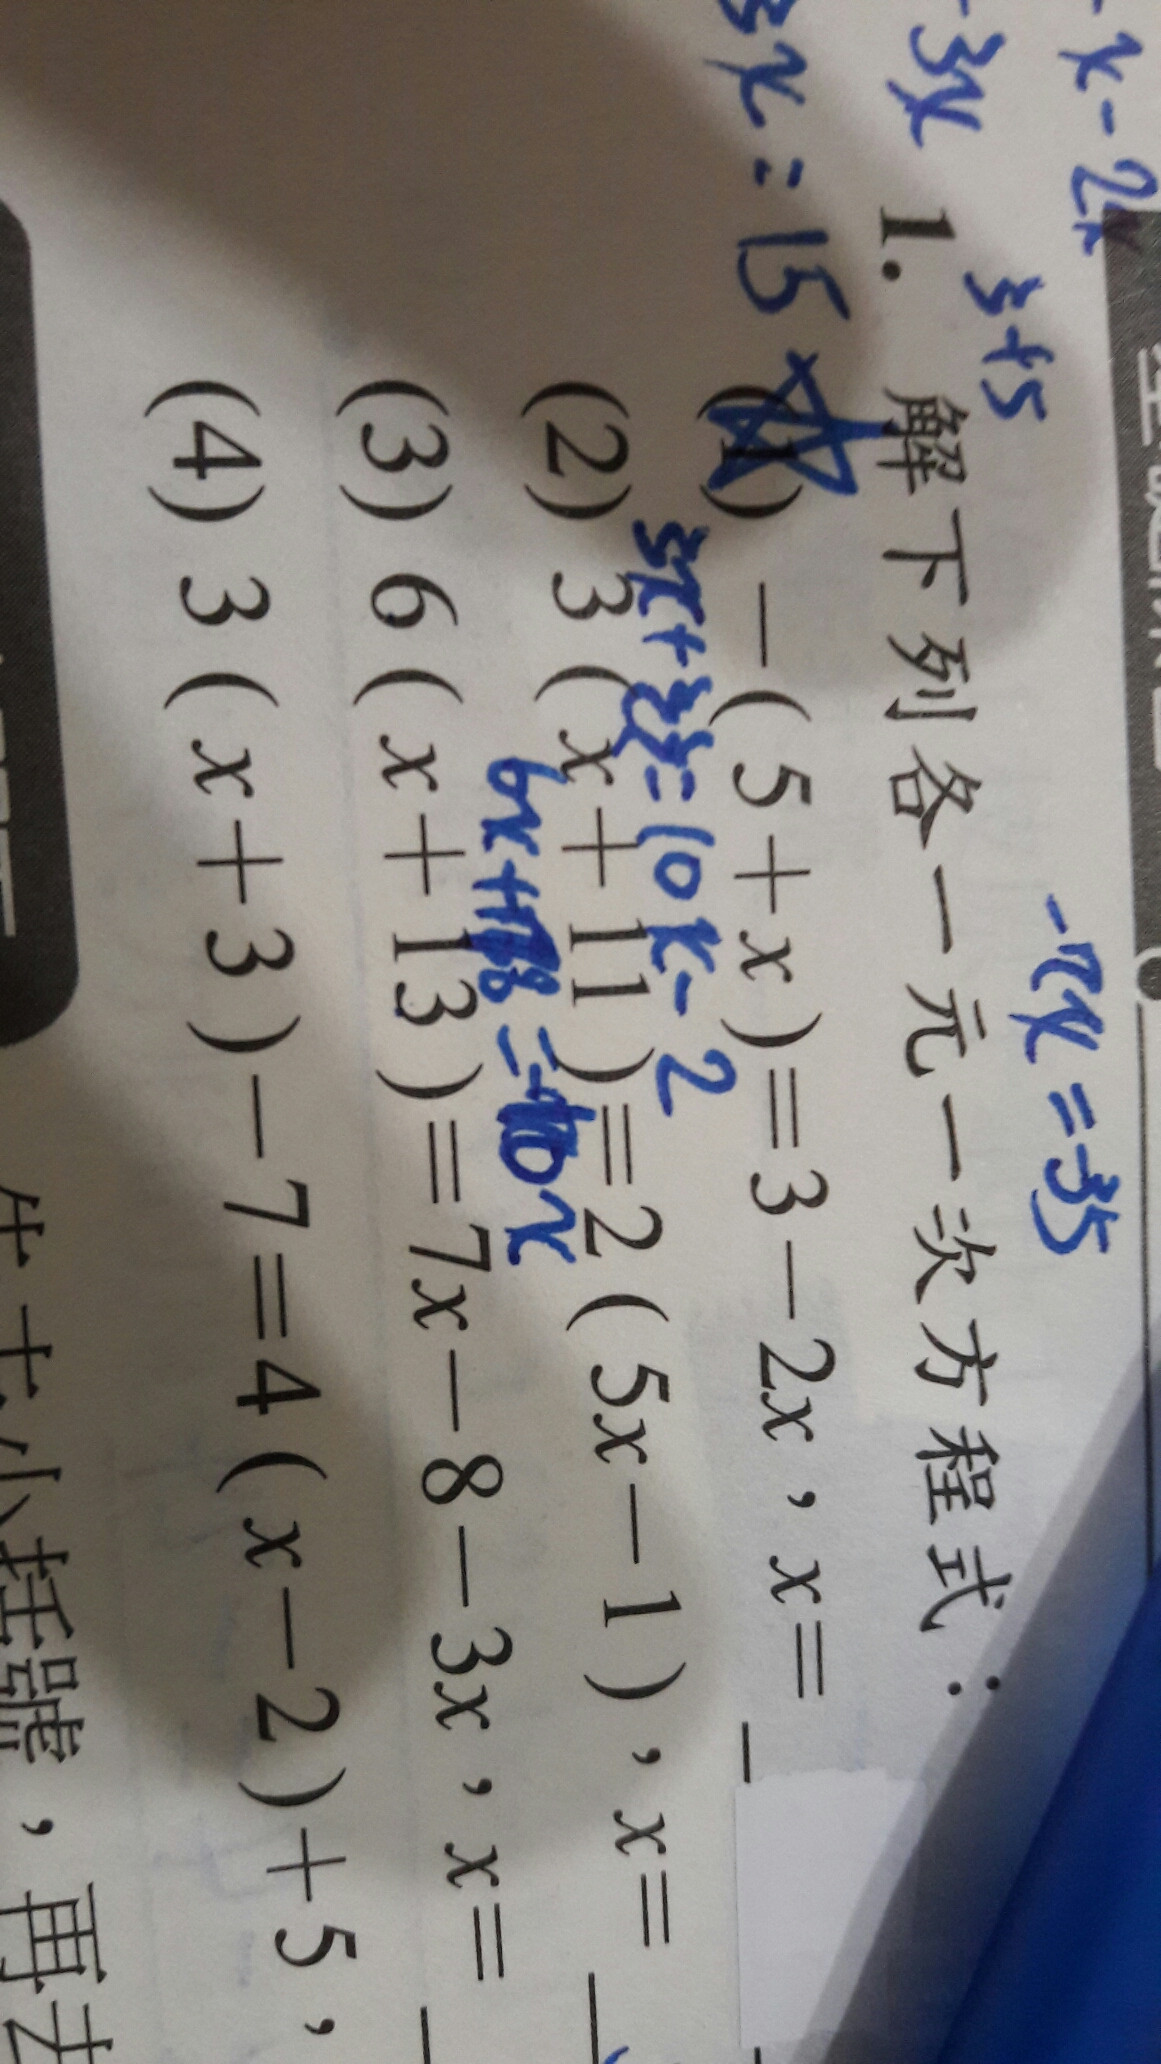 -x-2x
-3x 3+5 -7x=-35
3x=15
1. 解下列各一元一次方程式：
(1) -(5+x)=3-2x，x=
3x+33=10x-2
(2) 3(x+11)=2(5x-1)，x=
(3) 6(x+13)=7x-8-3x，x=
(4) 3(x+3)-7=4(x-2)+5，
小括號，再去